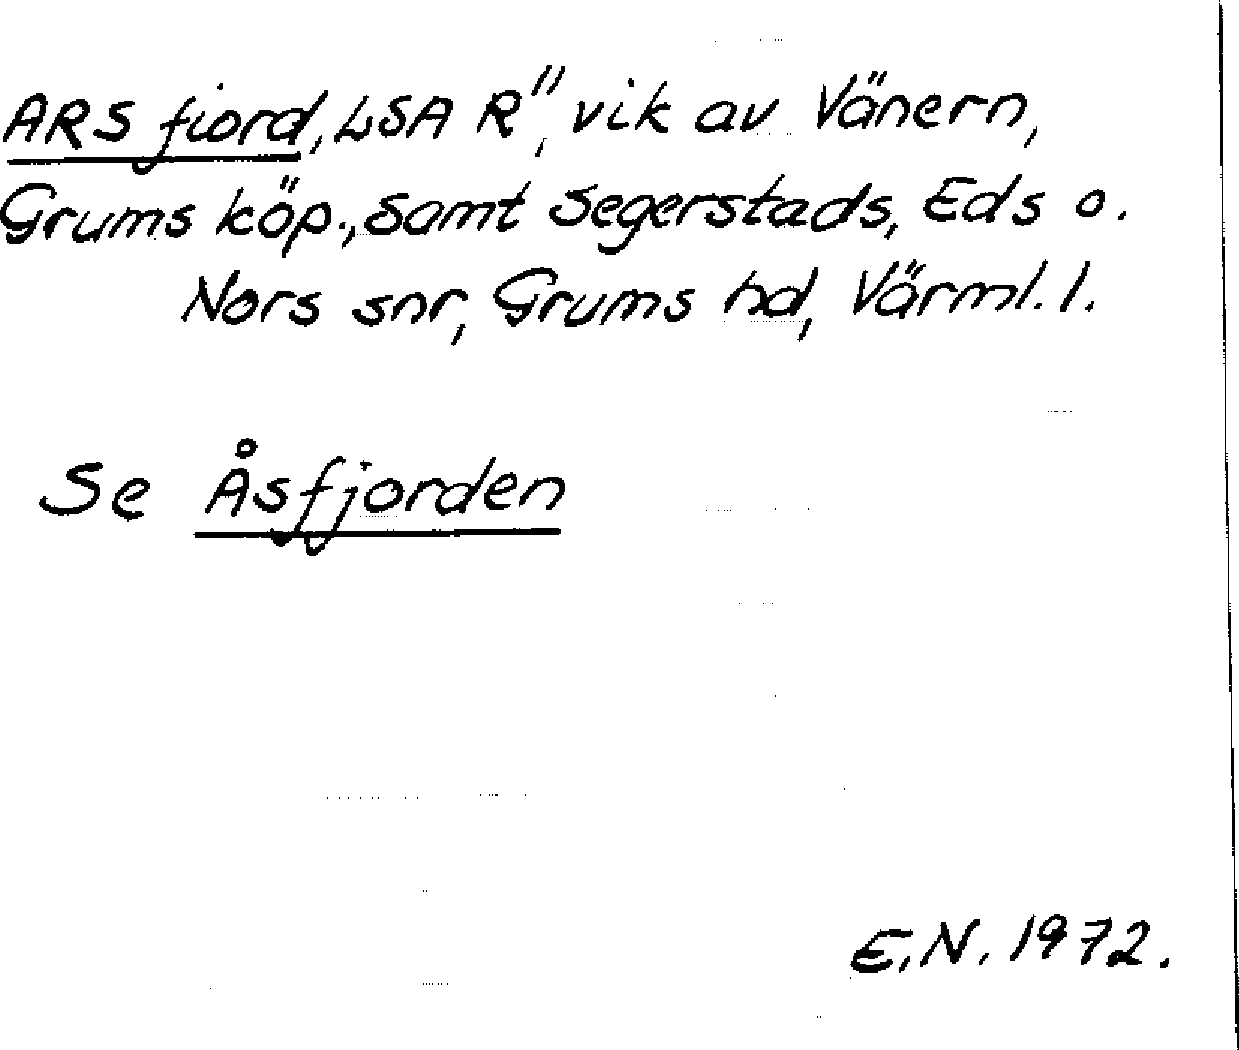 ARS fiord, LSA R", vik av Vänern,
Grums köp., samt Segerstads, Eds o.
Nors snr, Grums hd, Värml. l.
Se Åsfjorden
E.N. 1972.